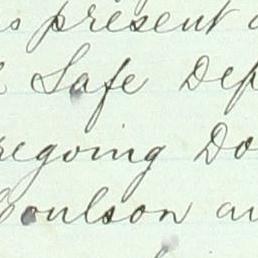 present
Safe Dep
egoing Do
oulson an